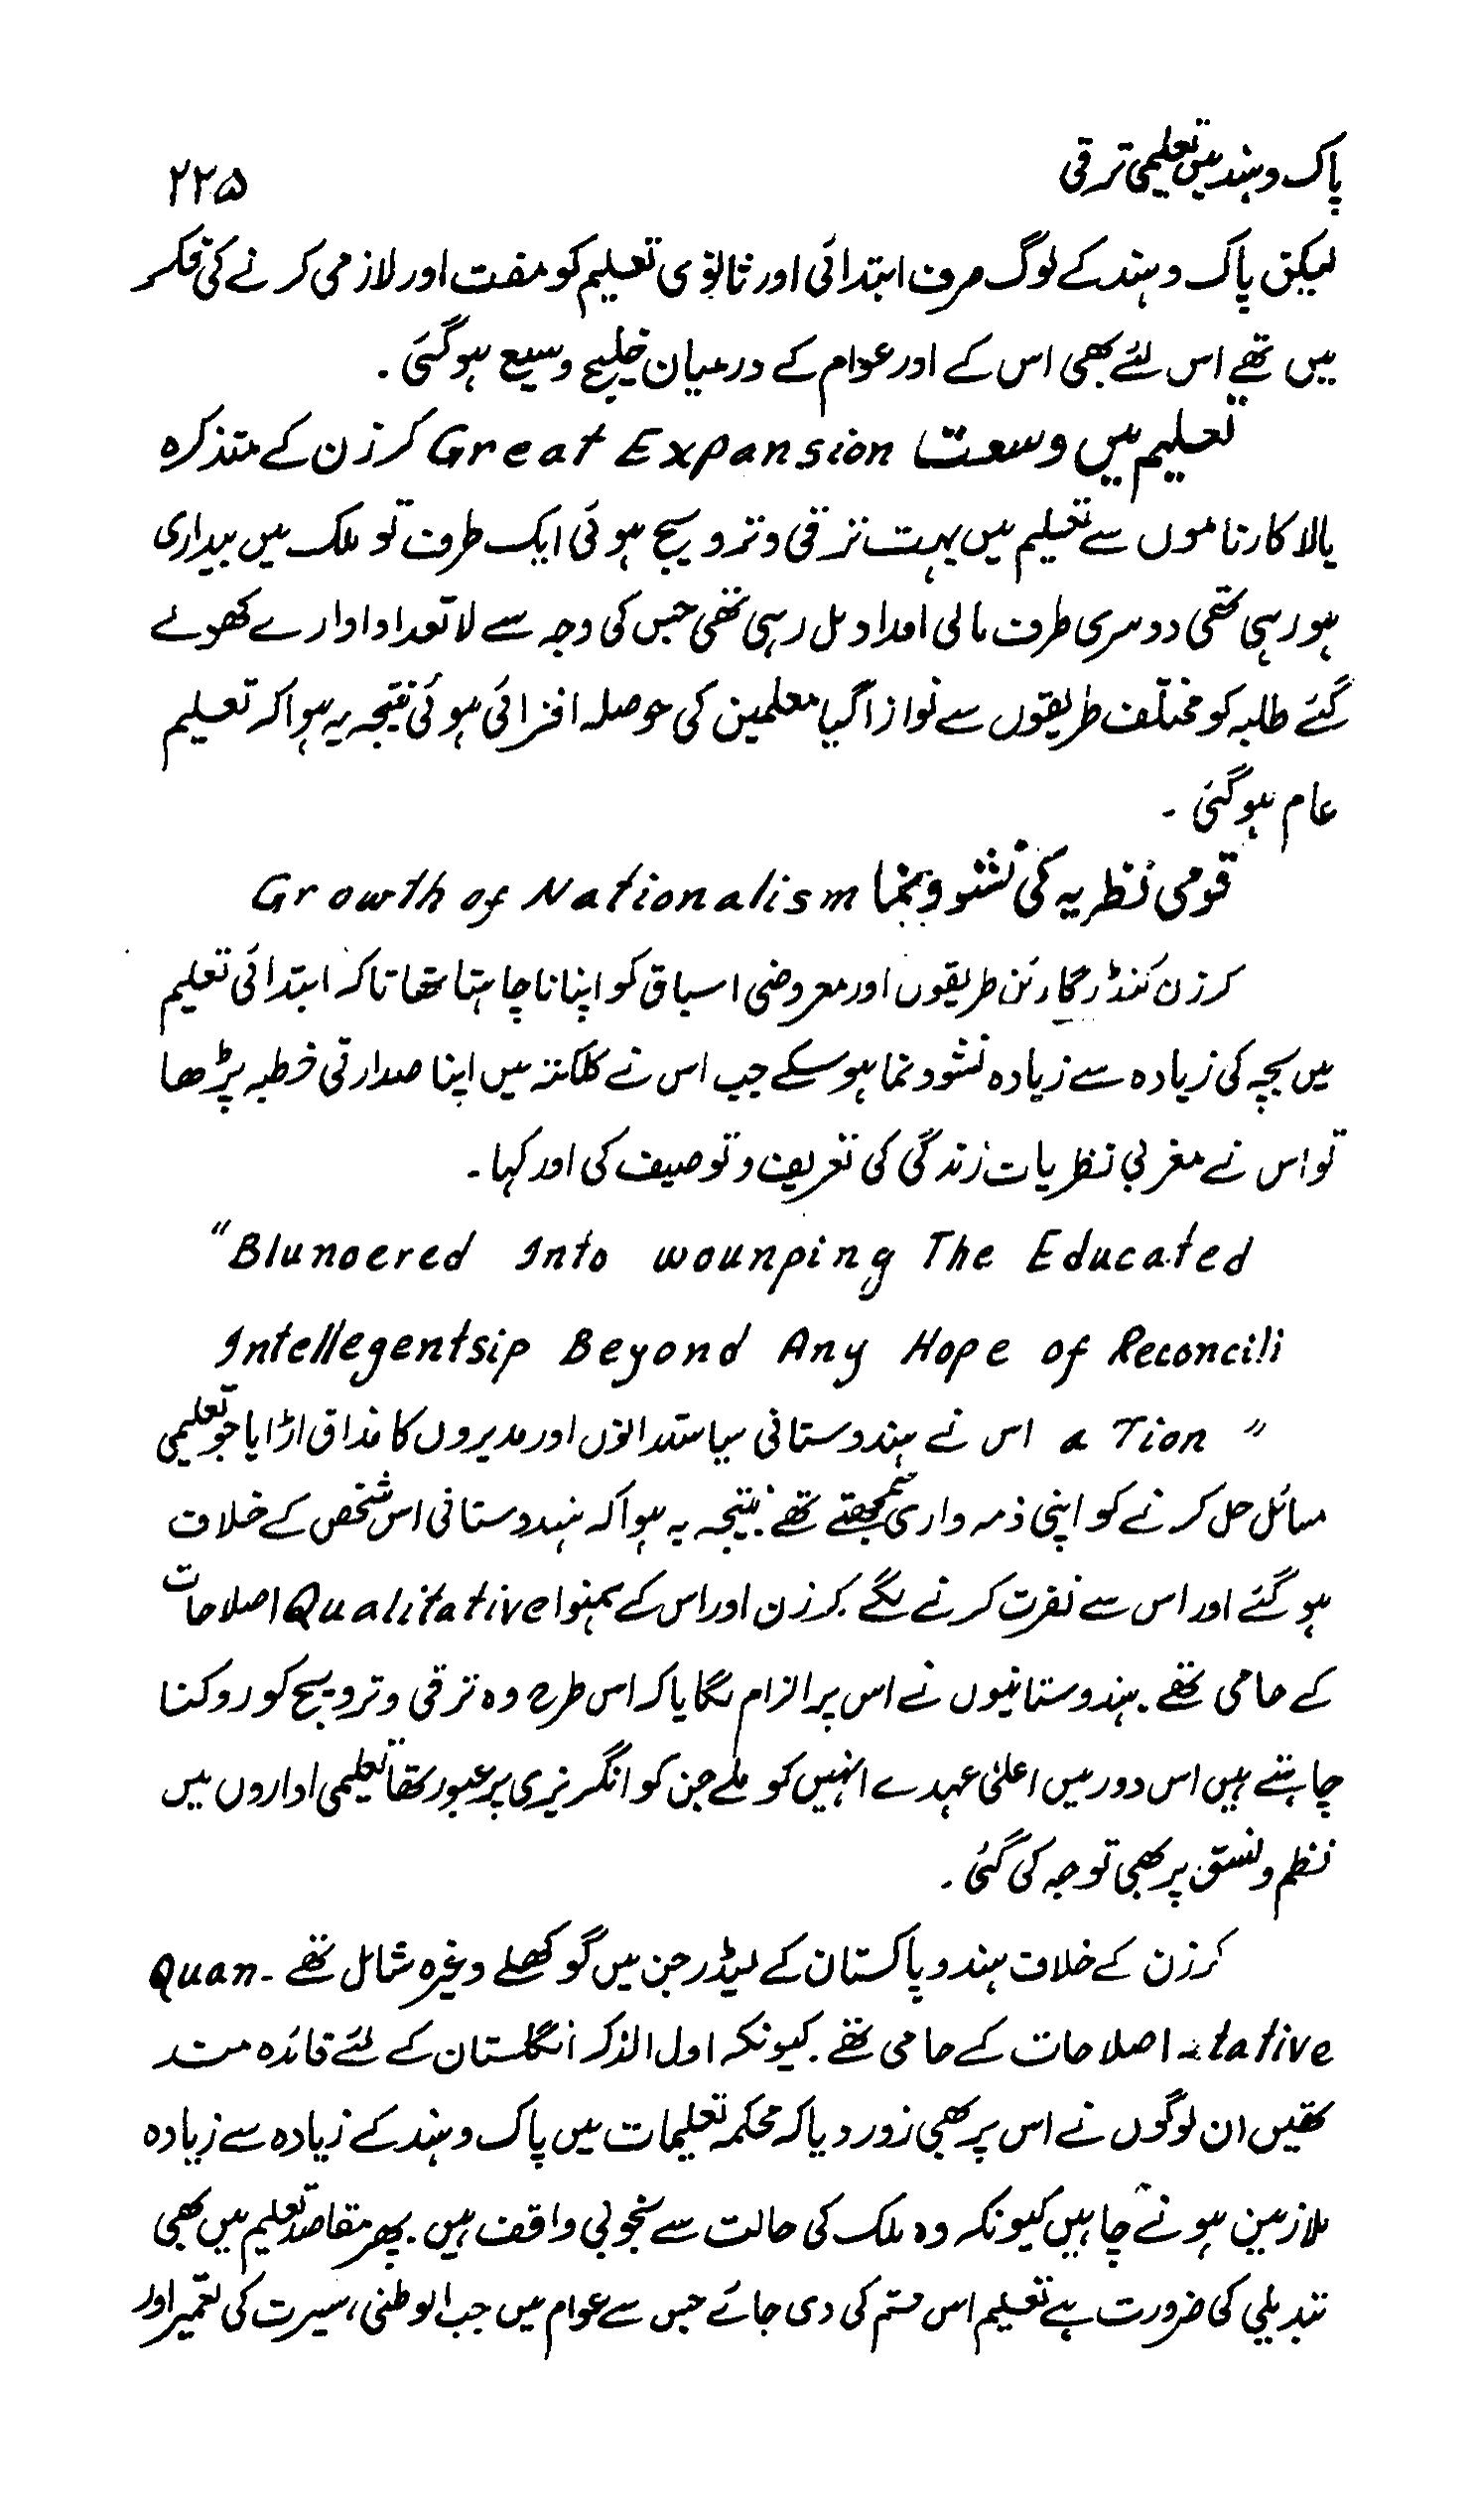 پاک و ہند میں تعلیمی ترقی ۲۲۵
لیکن پاک و ہند کے لوگ صرف ابتدائی اور ثانوی تعلیم کو مفت اور لازمی کرنے کی فکر
میں تھے اس لئے بھی اس کے اور عوام کے درمیان خلیج وسیع ہوگئی ۔
تعلیم میں وسعت Great Expansion کرزن کے متذکرہ
بالا کارناموں سے تعلیم میں بہت ترقی و ترویج ہوئی ایک طرف تو ملک میں بیداری
ہو رہی تھی دوسری طرف مالی امداد مل رہی تھی جس کی وجہ سے لاتعداد ادارے کھولے
گئے طلبہ کو مختلف طریقوں سے نوازا گیا معلمین کی حوصلہ افزائی ہوئی نتیجہ یہ ہوا کہ تعلیم
عام ہوگئی ۔
قومی نظریہ کی نشوونما Growth of Nationalism
کرزن کنڈر گارٹن طریقوں اور معروضی اسباق کو اپنانا چاہتا تھا تاکہ ابتدائی تعلیم
میں بچہ کی زیادہ سے زیادہ نشوونما ہوسکے جب اس نے کلکتہ میں اپنا صدارتی خطبہ پڑھا
تو اس نے مغربی نظریات زندگی کی تعریف و توصیف کی اور کہا ۔
"Blunoered Into wounping The Educated
Intellegentsip Beyond Any Hope of Reconcili
a Tion " اس نے ہندوستانی سیاستدانوں اور مدبروں کا مذاق اڑایا جو تعلیمی
مسائل حل کرنے کو اپنی ذمہ داری سمجھتے تھے نتیجہ یہ ہوا کہ ہندوستانی اس شخص کے خلاف
ہوگئے اور اس سے نفرت کرنے لگے ۔ کرزن اور اس کے ہمنوا Qualitative اصلاحات
کے حامی تھے ۔ ہندوستانیوں نے اس پر الزام لگایا کہ اس طرح وہ ترقی و ترویج کو روکنا
چاہتے ہیں اس دور میں اعلیٰ عہدے انہیں کو ملے جن کو انگریزی پر عبور تھا تعلیمی اداروں میں
نظم و نسق پر بھی توجہ کی گئی ۔
کرزن کے خلاف ہند و پاکستان کے لیڈر جن میں گوکھلے وغیرہ شامل تھے Quan-
tative اصلاحات کے حامی تھے ۔ کیونکہ اول الذکر انگلستان کے لئے فائدہ مند
تھیں ان لوگوں نے اس پر بھی زور دیا کہ محکمہ تعلیمات میں پاک و ہند کے زیادہ سے زیادہ
ملازمین ہونے چاہیں کیونکہ وہ ملک کی حالت سے بخوبی واقف ہیں ۔ پھر مقاصد تعلیم میں بھی
تبدیلی کی ضرورت ہے تعلیم اس قسم کی دی جائے جس سے عوام میں حب الوطنی ، سیرت کی تعمیر اور